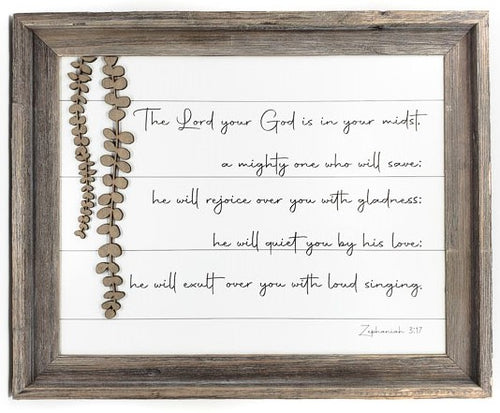 The Lord your God is in your midst,
a mighty one who will save;
he will rejoice over you with gladness;
he will quiet you by his love;
he will exult over you with loud singing.
Zephaniah 3:17